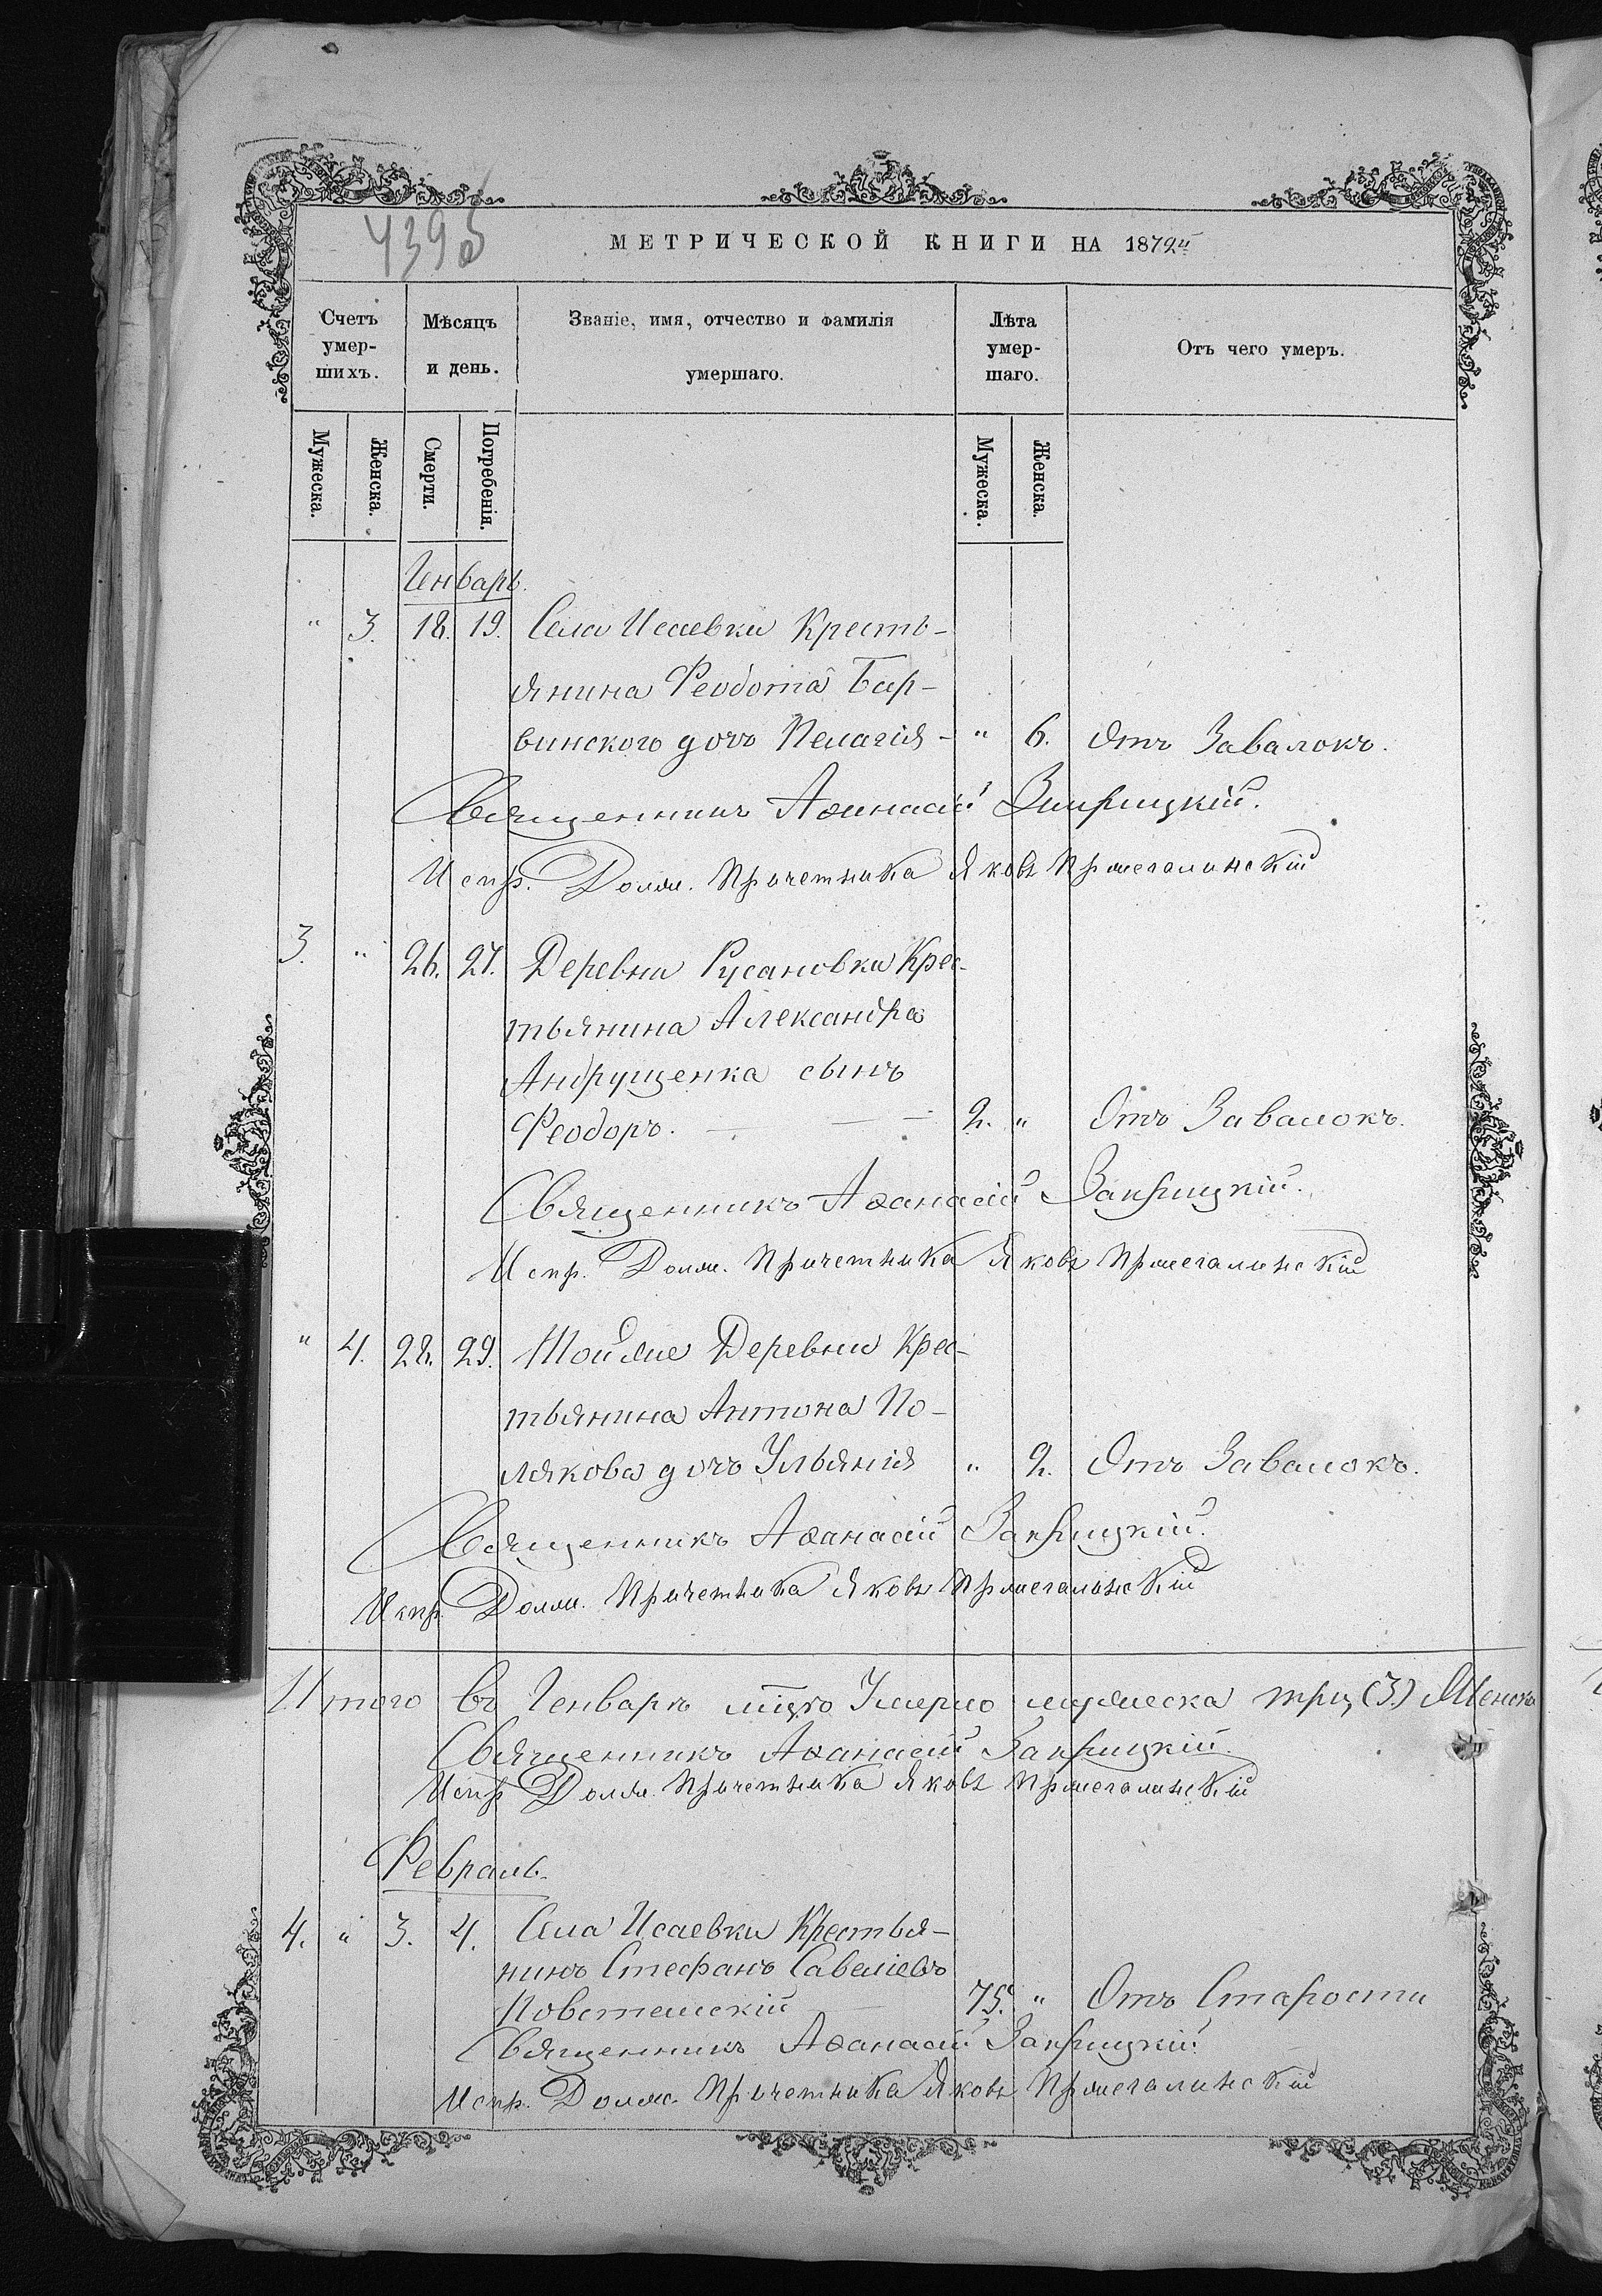 439об
МЕТРИЧЕСКОЙ КНИГИ НА 1872й
Счетъ умер-шихъ.
Мѣсяцъ и день.
Званіе, имя, отчество и фамилія умершаго.
Лѣта умер-шаго.
Отъ чего умеръ.
Мужеска.
Женска.
Смерти.
Погребенія.
Мужеска.
Женска.
Генварь.
" 3. 18. 19. Села Исаевки Кресть-
янина Феодота Бар-
винского дочь Пелагія - " 6. Отъ Завалокъ.
Священникъ Аѳанасій Закрицкій.
Испр. Долж. Причетника Яковъ
3. " 26. 27. Деревни Русановки Крес-
тьянина Александра
Андрущенка сынъ
Феодоръ. — — 2. " Отъ Завалокъ.
Священникъ Аѳанасій Закрицкій.
Испр. Долж. Причетника Яковъ
" 4. 28. 29. Той же Деревни Крес-
тьянина Антона По-
лякова дочь Ульянія " 2. Отъ Завалокъ.
Священникъ Аѳанасій Закрицкій.
Испр. Долж. Причетника Яковъ
Итого въ Генварѣ мцѣ Умерло мужеска три (3) Женска
Священникъ Аѳанасій Закрицкій.
Испр Долж. Причетника Яковъ
Февраль.
4. " 3. 4. Села Исаевки Крестья-
нинъ Стефанъ Савеліевъ
75. " Отъ Старости
Священникъ Аѳанасій Закрицкій
Испр. Долж. Причетника Яковъ